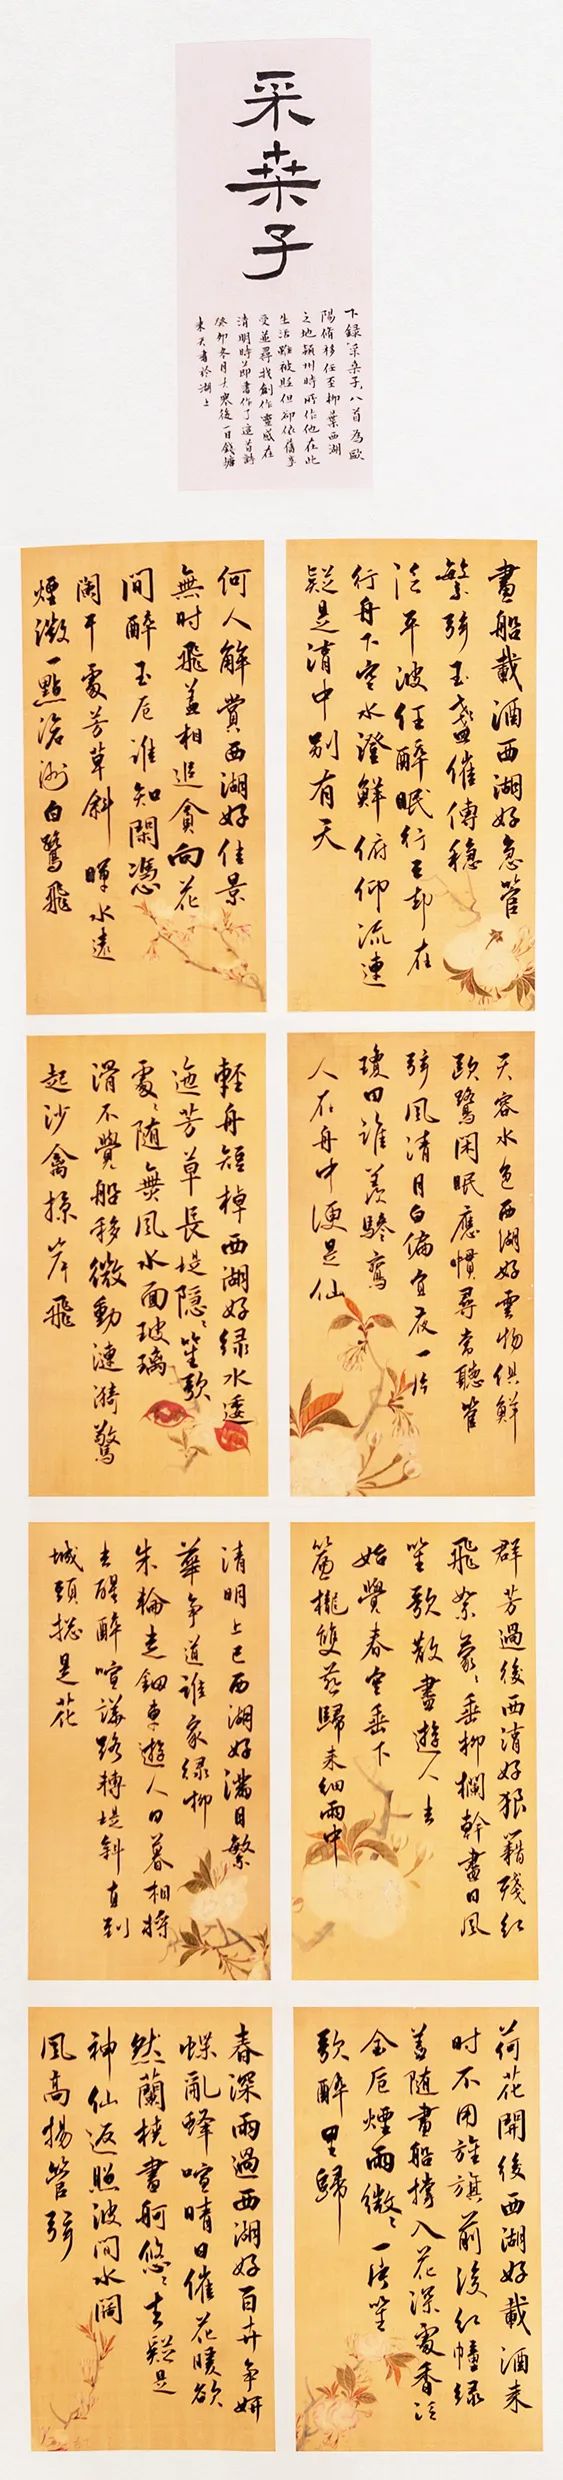 采桒子
下録采桒子八首為歐
陽脩移任至柳葉西湖
之地潁州時所作他在此
生活雖被貶但卻依舊享
受並尋找創作靈感在
清明時節書作了這首詩
癸卯冬月大寒後一日錢塘
天書於湖上
畫船載酒西湖好急管
繁弦玉盞催傳穩
泛平波任醉眠行雲却在
行舟下空水澄鮮俯仰流連
疑是湖中别有天
何人解賞西湖好佳景
無时飛盖相追貪向花
間醉玉卮誰知閑憑
闌干處芳草斜暉水遠
煙微一點滄洲白鷺飛
天容水色西湖好雲物俱鮮
鷗鷺闲眠應慣尋常聽管
弦風清月白偏宜夜一片
瓊田誰羡驂鸞
人在舟中便是仙
輕舟短棹西湖好绿水逶
迤芳草長堤隱〻笙歌
處〻随無風水面玻璃
滑不覺船移微動漣漪驚
起沙禽掠岸飛
群芳過後西湖好狼籍殘红
飛絮蒙〻垂柳欄幹盡日風
笙歌散盡遊人去
始覺春空垂下
簾櫳雙燕歸来细雨中
清明上巳西湖好满目繁
華争道誰家绿柳
朱輪走鈿車遊人日暮相将
去醒醉喧譁路轉堤斜直到
城頭總是花
荷花開後西湖好載酒来
时不用旌旗前後红幢绿
盖随畫船撐入花深處香泛
金卮煙雨微〻一片笙
歌醉里歸
春深雨過西湖好百卉争妍
蝶亂蜂喧晴日催花暖欲
然蘭橈畫舸悠〻去疑是
神仙返照波间水闊
風高揚管弦